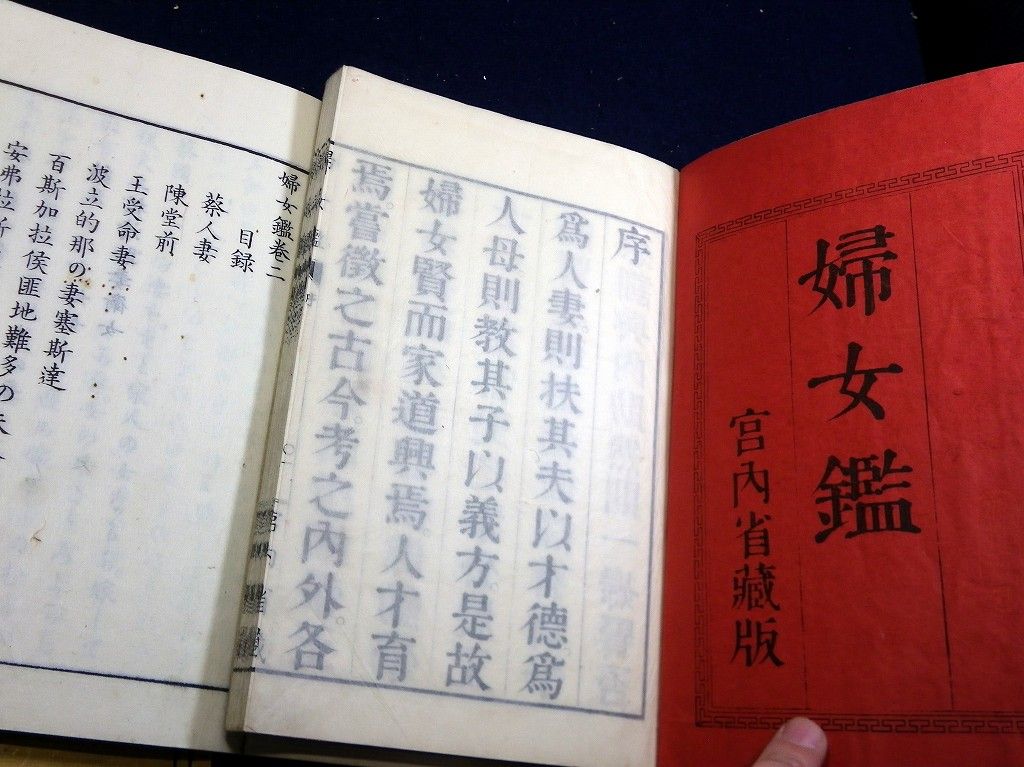 婦女鑑
宮內省藏版
序
爲人妻則扶其夫以才德爲
人母則教其子以義方。是故
婦女賢而家道興焉。人才育
焉。嘗徵之古今。考之內外。各
婦女鑑巻二
目録
蔡人妻
陳堂前
王受命妻
波立的那の妻塞斯達
百斯加拉侯匪地難多の夫
安弗拉斯